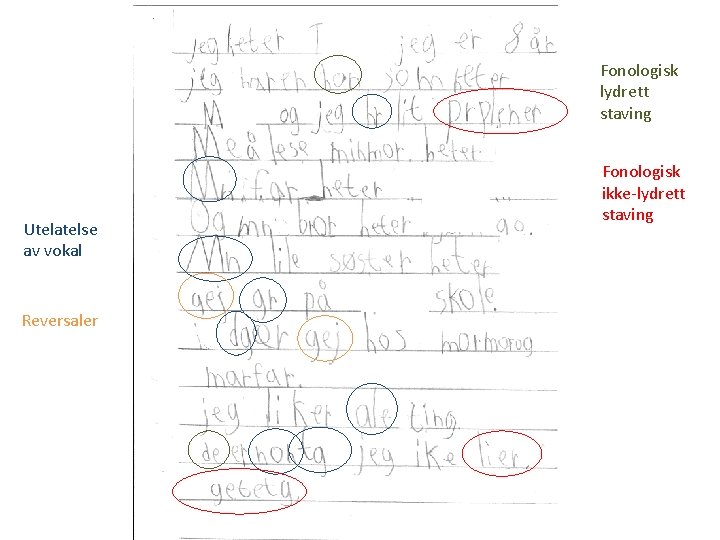 jeg heter T jeg er 8 år
jeg haren hor som heter
M og jeg hr lit prplemer
Me å lese minmor heter
Mn far heter
Og mn bror heter go.
Mn lile søster heter
gej gr på skole.
i dger gej hos mormorog
marfar.
jeg liker ale ting
de er nohtg jeg ike lier.
getetg.
Fonologisk
lydrett
staving
Fonologisk
ikke-lydrett
staving
Utelatelse
av vokal
Reversaler